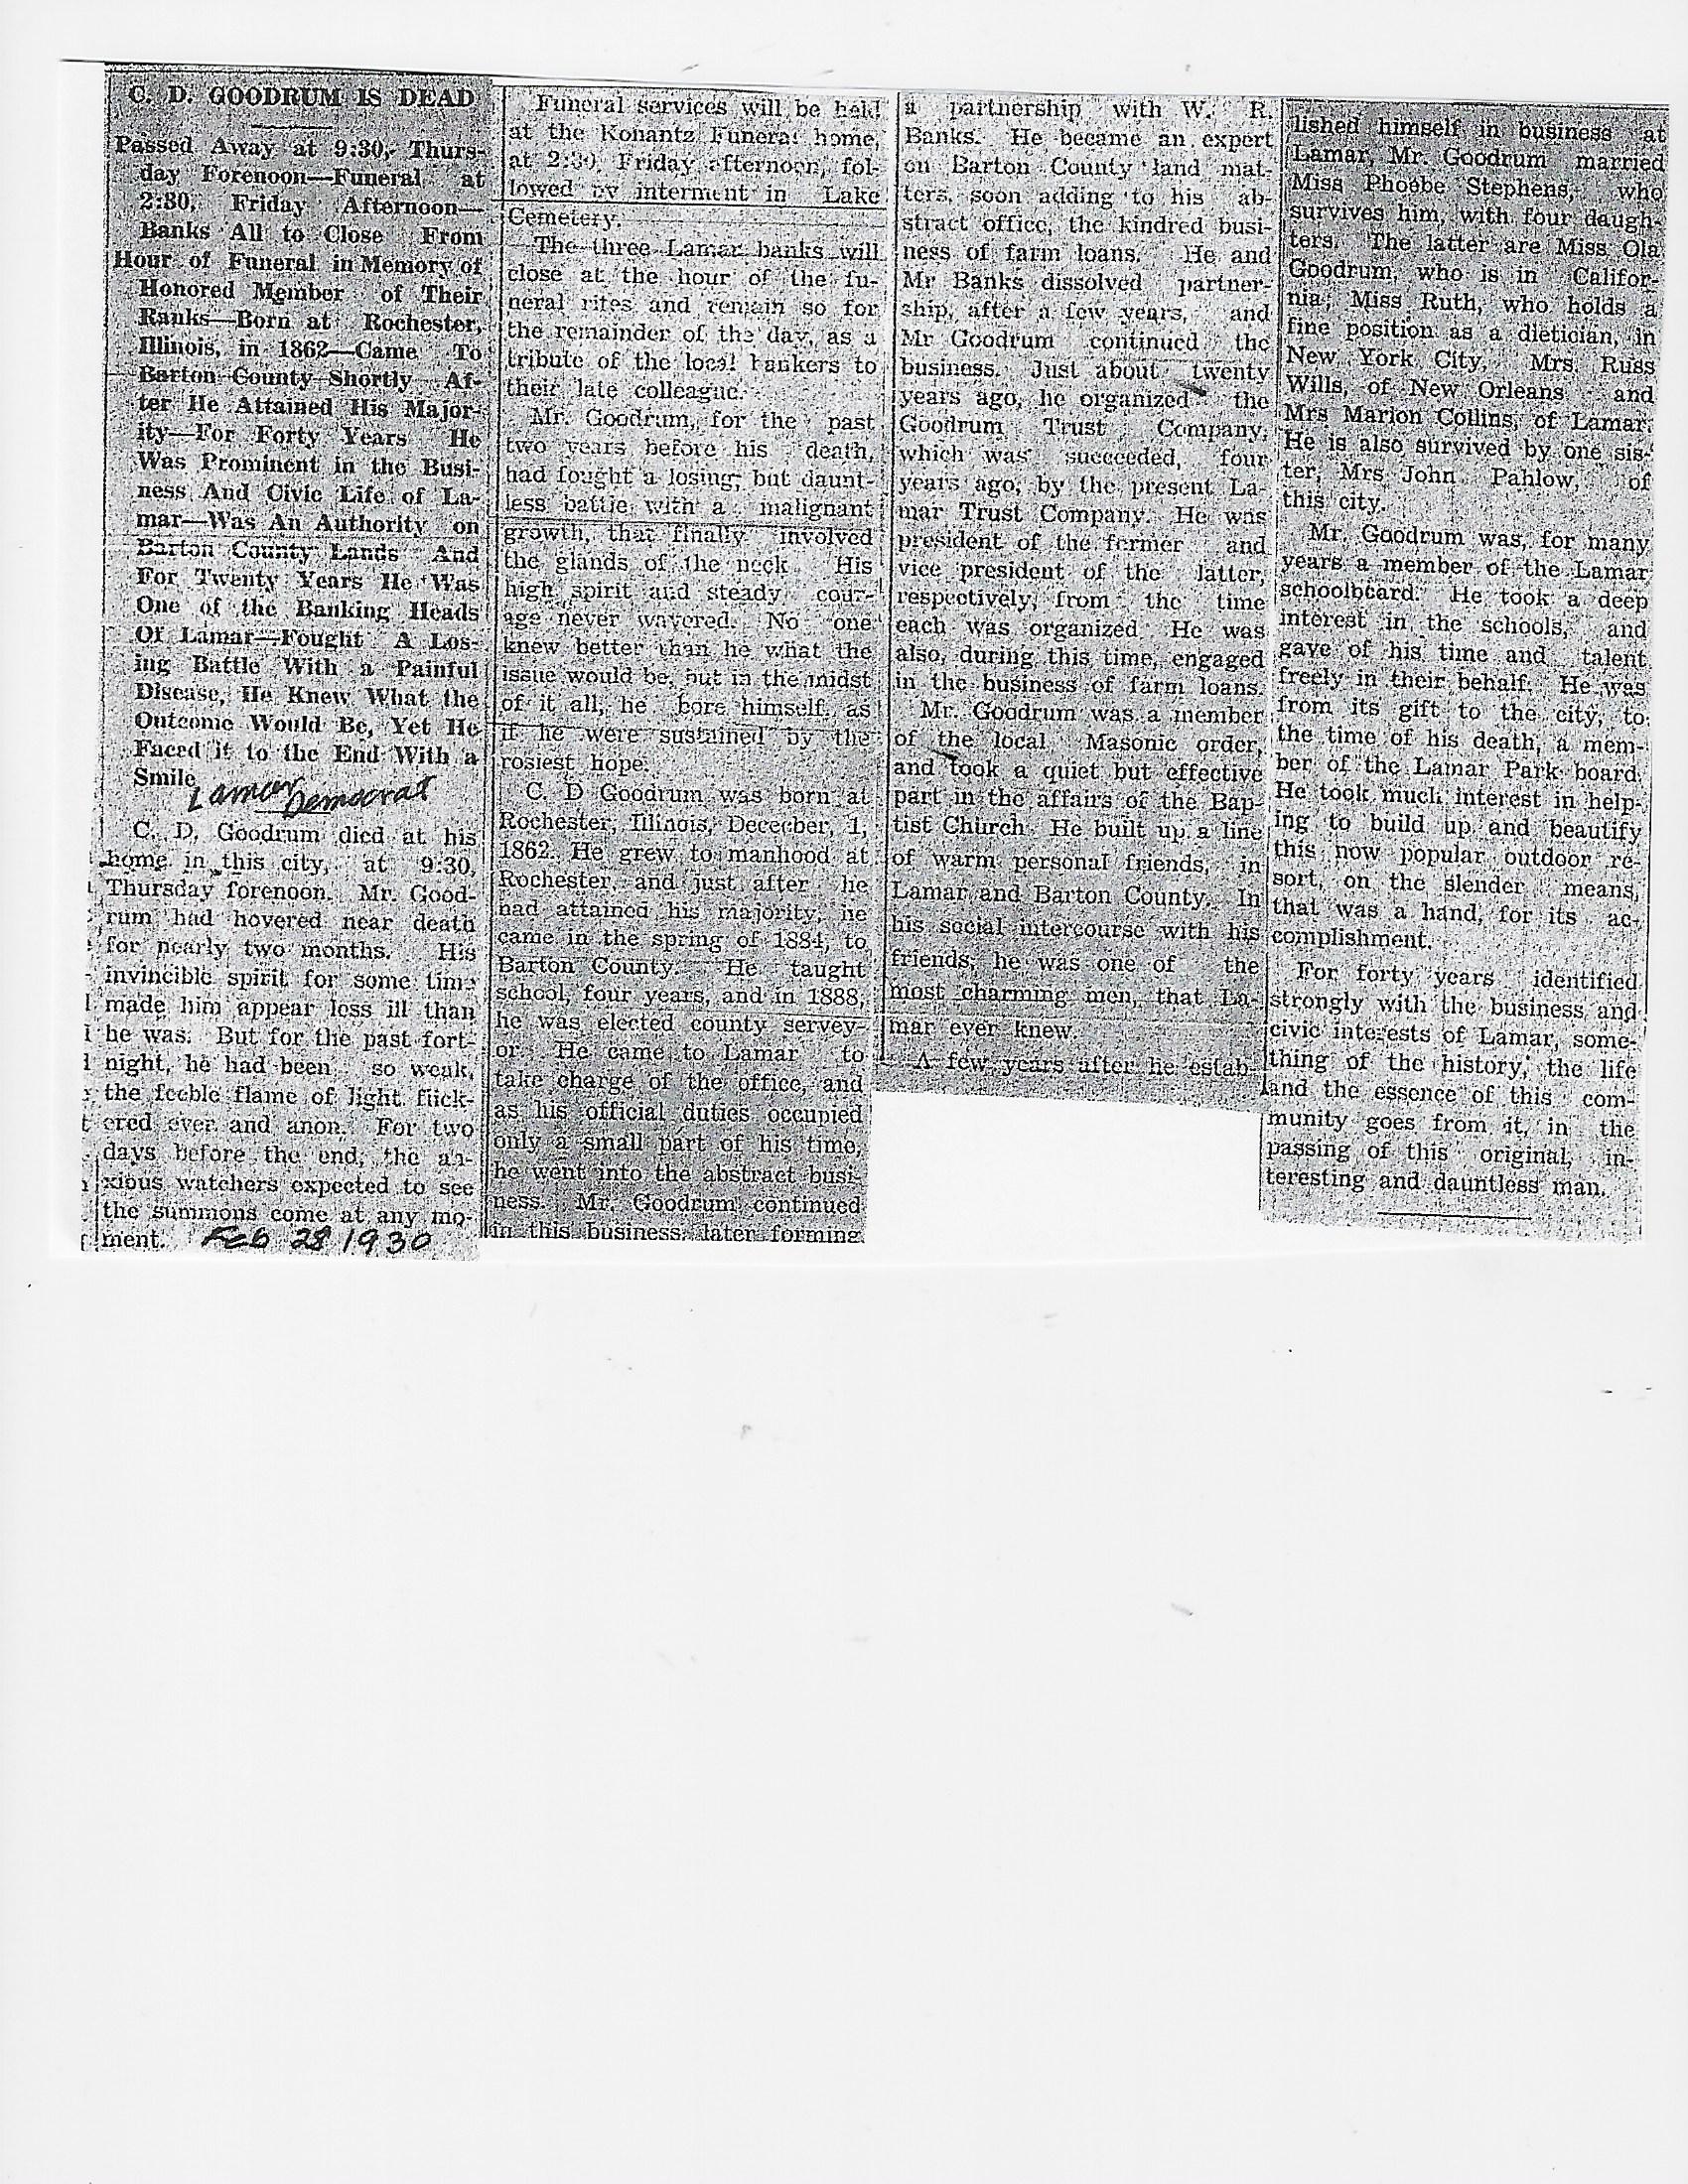 C. D. GOODRUM IS DEAD
Passed Away at 9:30, Thurs-
day Forenoon—Funeral at
2:30, Friday Afternoon—
Banks All to Close From
Hour of Funeral in Memory of
Honored Member of Their
Ranks—Born at Rochester,
Illinois, in 1862—Came To
Barton County Shortly Af-
ter He Attained His Major-
ity—For Forty Years He
Was Prominent in the Busi-
ness And Civic Life of La-
mar—Was An Authority on
Barton County Lands And
For Twenty Years He Was
One of the Banking Heads
Of Lamar—Fought A Los-
ing Battle With a Painful
Disease, He Knew What the
Outcome Would Be, Yet He
Faced it to the End With a
Smile
Lamar Democrat
C. D. Goodrum died at his
home in this city, at 9:30,
Thursday forenoon. Mr. Good-
rum had hovered near death
for nearly two months. His
invincible spirit for some time
made him appear less ill than
he was. But for the past fort-
night, he had been so weak,
the feeble flame of light flick-
ered ever and anon. For two
days before the end, the an-
xious watchers expected to see
the summons come at any mo-
ment.
Feb 28 1930
Funeral services will be held
at the Konantz Funeral home,
at 2:30, Friday afternoon, fol-
lowed by interment in Lake
Cemetery.
The three Lamar banks will
close at the hour of the fu-
neral rites and remain so for
the remainder of the day, as a
tribute of the local bankers to
their late colleague.
Mr. Goodrum, for the past
two years before his death,
had fought a losing, but daunt-
less battle with a malignant
growth, that finally involved
the glands of the neck. His
high spirit and steady cour-
age never wavered. No one
knew better than he what the
issue would be, but in the midst
of it all, he bore himself as
if he were sustained by the
rosiest hope.
C. D Goodrum was born at
Rochester, Illinois, Dececber, 1,
1862. He grew to manhood at
Rochester, and just after he
had attained his majority, he
came in the spring of 1884, to
Barton County. He taught
school, four years, and in 1888,
he was elected county servey-
or. He came to Lamar to
take charge of the office, and
as his official duties occupied
only a small part of his time,
he went into the abstract busi-
ness. Mr. Goodrum continued
in this business, later forming
a partnership with W. R.
Banks. He became an expert
on Barton County land mat-
ters, soon adding to his ab-
stract office, the kindred busi-
ness of farm loans. He and
Mr Banks dissolved partner-
ship, after a few years, and
Mr Goodrum continued the
business. Just about twenty
years ago, he organized the
Goodrum Trust Company,
which was succeeded, four
years ago, by the present La-
mar Trust Company. He was
president of the former and
vice president of the latter,
respectively, from the time
each was organized He was
also, during this time, engaged
in the business of farm loans.
Mr. Goodrum was a member
of the local Masonic order,
and took a quiet but effective
part in the affairs of the Bap-
tist Church. He built up a line
of warm personal friends, in
Lamar and Barton County. In
his social intercourse with his
friends, he was one of the
most charming men, that La-
mar ever knew.
A few years after he estab-
lished himself in business at
Lamar, Mr. Goodrum married
Miss Phoebe Stephens, who
survives him, with four daugh-
ters. The latter are Miss Ola
Goodrum, who is in Califor-
nia, Miss Ruth, who holds a
fine position as a dietician, in
New York City, Mrs. Russ
Wills, of New Orleans and
Mrs Marion Collins, of Lamar.
He is also survived by one sis-
ter, Mrs. John Pahlow, of
this city.
Mr. Goodrum was, for many
years a member of the Lamar
schoolboard. He took a deep
interest in the schools, and
gave of his time and talent
freely in their behalf. He was
from its gift to the city, to
the time of his death, a mem-
ber of the Lamar Park board.
He took much interest in help-
ing to build up and beautify
this now popular outdoor re-
sort, on the slender means,
that was a hand, for its ac-
complishment.
For forty years identified
strongly with the business and
civic interests of Lamar, some-
thing of the history, the life
and the essence of this com-
munity goes from it, in the
passing of this original, in-
teresting and dauntless man.